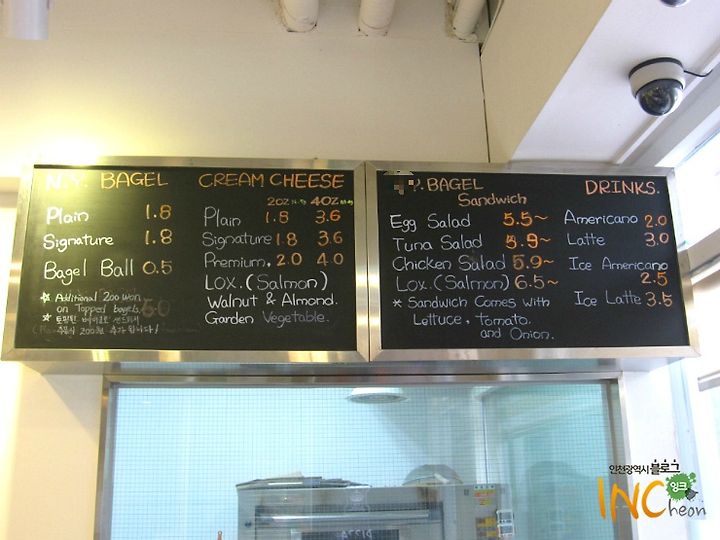 N.Y. BAGEL
Plain 1.8
Signature 1.8
Bagel Ball 0.5
* Additional 200 won
on Topped bagels.
CREAM CHEESE
2OZ 4OZ
Plain 1.8 3.6
Signature 1.8 3.6
Premium, 2.0 4.0
LOX.(Salmon)
Walnut & Almond.
Garden Vegetable.
Y. BAGEL
Sandwich
Egg Salad 5.5~
Tuna Salad 5.9~
Chicken Salad 5.9~
Lox.(Salmon) 6.5~
* Sandwich Comes with
Lettuce, Tomato.
and Onion.
DRINKS.
Americano 2.0
Latte 3.0
Ice Americano
2.5
Ice Latte 3.5
인천광역시 블로그
INCheon
잉크